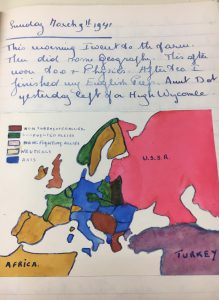 Sunday March 9th 1941.
This morning I went to the farm.
Then did some Geography. This after
noon I did Physics. After tea I
finished my English Prep. Aunt Dot
yesterday left for High Wycombe
OCCUPIED ALLIES
NON-FIGHTING ALLIES
NEUTRALS
AXIS
U.S.S.R.
AFRICA.
TURKEY